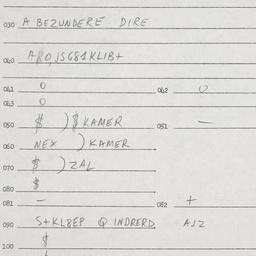 030 A BEZUNDERE DIRE
040 ABO,JSG81KLIB+
041 0 042 0
043 0
050 $ )$KAMER 051 —
060 NEX )KAMER
070 $ )ZAL
080 $
081 — 082 +
090 S+KL8EP Q INDRERD AJZ
100 $